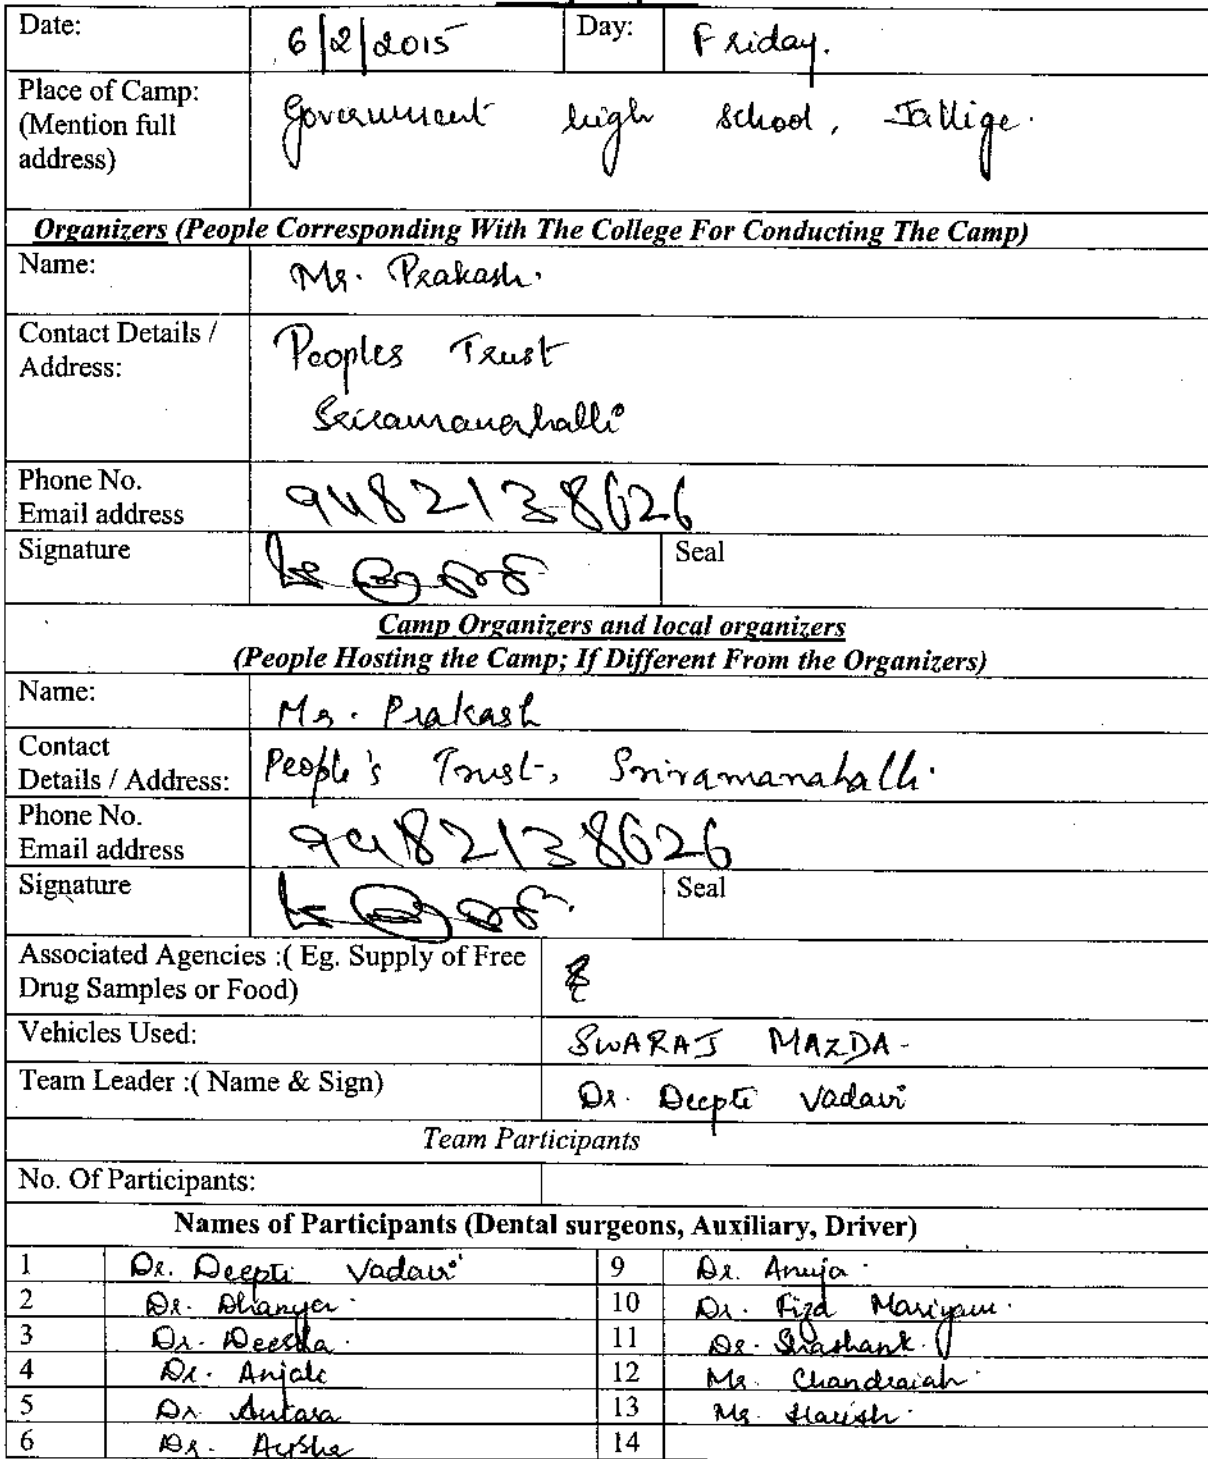 Date: 6/2/2015 Day: Friday.
Place of Camp: Government high school, Jallige.
(Mention full
address)
Organizers (People Corresponding With The College For Conducting The Camp)
Name: Mr. Prakash.
Contact Details / Peoples Trust
Address:
Sriramanahalli
Phone No. 9482138626
Email address
Signature Seal
Camp Organizers and local organizers
(People Hosting the Camp; If Different From the Organizers)
Name: Mr. Prakash
Contact
Details / Address: People's Trust, Sriramanahalli.
Phone No. 9482138626
Email address
Signature Seal
Associated Agencies :( Eg. Supply of Free
Drug Samples or Food)
Vehicles Used: SWARAJ MAZDA -
Team Leader :( Name & Sign) Dr. Deepti Vadavi
Team Participants
No. Of Participants:
Names of Participants (Dental surgeons, Auxiliary, Driver)
1 Dr. Deepti Vadavi 9 Dr. Anuja.
2 Dr. Dhanya. 10 Dr. Fiza Mariyam.
3 Dr. Deesha. 11 Dr. Shashank.
4 Dr. Anjali 12 Mr. Chandraiah.
5 Dr Antara 13 Mr. Harish.
6 Dr. Aysha 14